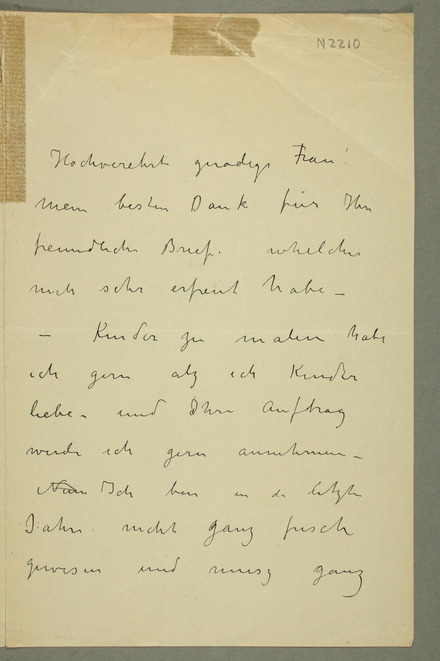 N2210
Hochverehrte gnädige Frau!
Mein besten Dank für Ihr
freundliche Brief. whelches
mich sehr erfreut habe –
– Kinder zu malen habe
ich gern alz ich Kinder
liebe – und Ihre Auftrag
werde ich gern annehmen –
Nun Ich bin in de letzte
Jahre nicht ganz frisch
gewesen und musz ganz